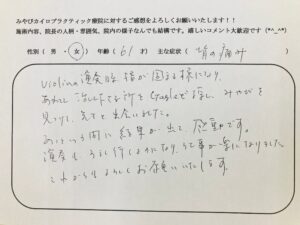 みやびカイロプラクティック療院に対するご感想をよろしくお願いいたします！！
施術内容、院長の人柄・雰囲気、院内の様子なんでも結構です。嬉しいコメント大歓迎です(*^_^*)
性別（ 男 ・ 女 ） 年齢（ 61 才 ） 主な症状（ の痛み
Violin演奏時 指が固まる様になり、
あわてて 治して 所を し、みやびを
見つけて、先生と出会いました。
あっという間に結果が出て、感動です。
演奏も 行くようになり、 事が楽になりました。
これからもよろしくお願いいたします。